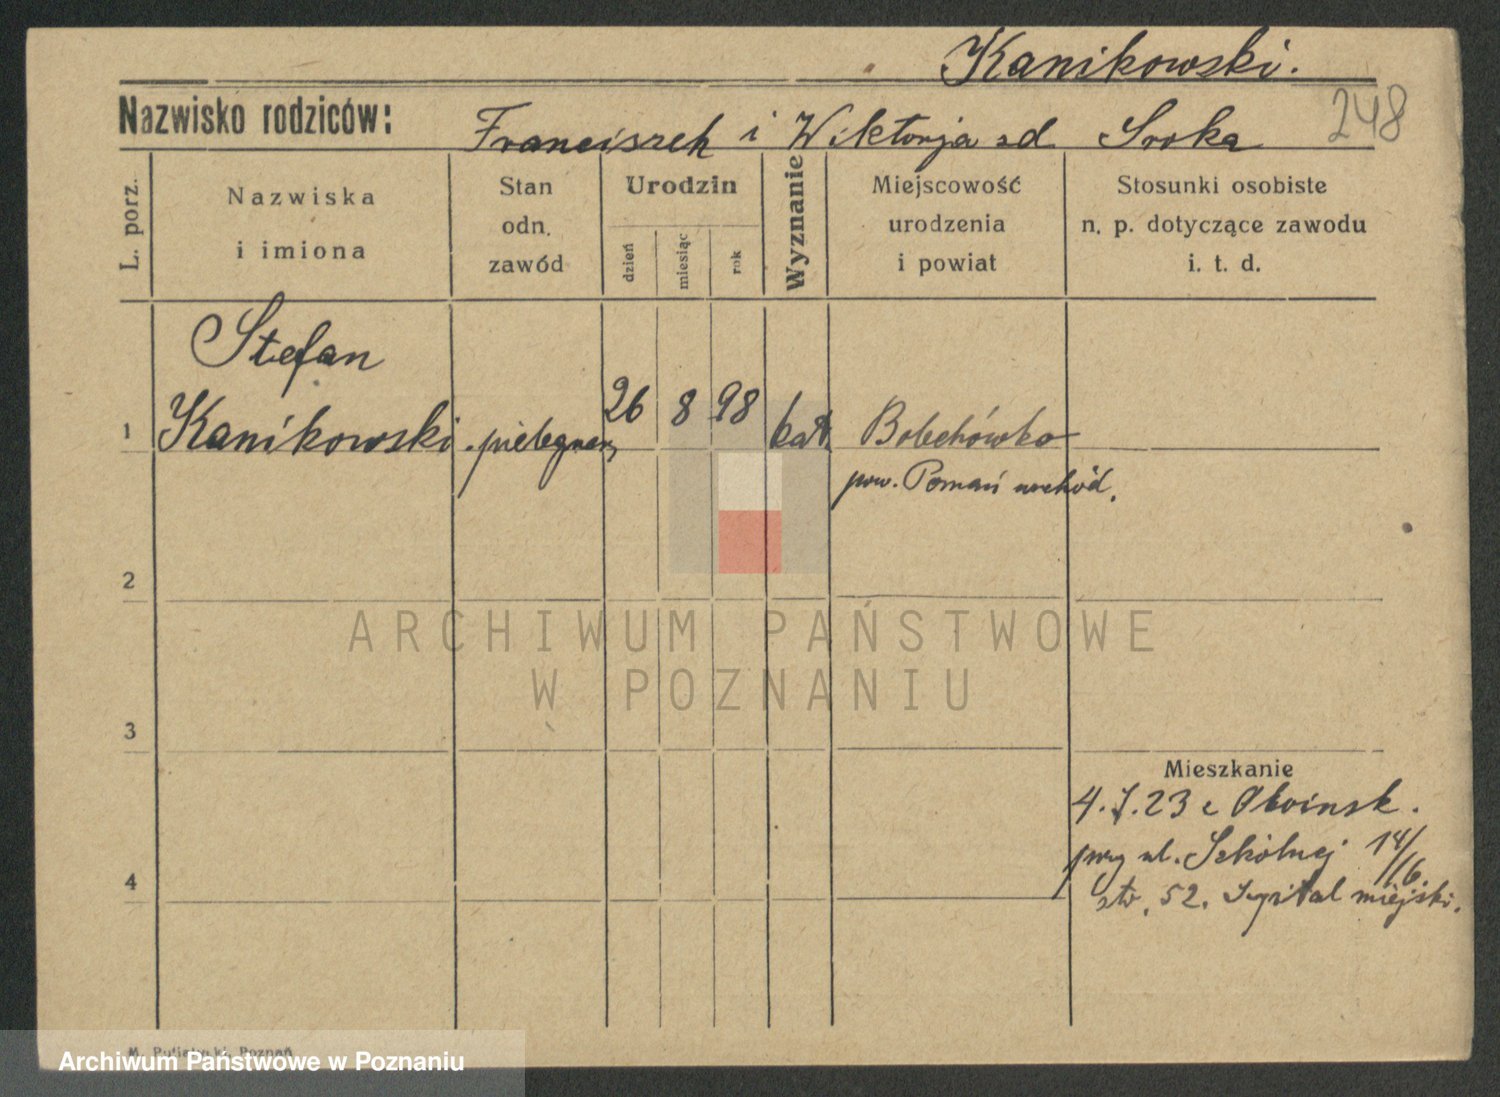 Kanikowski.
248
Nazwisko rodziców: Franciszek i Wiktorja zd Sroka
L. porz.
Nazwiska
i imiona
Stan
odn.
zawód
Urodzin
dzień
miesiąc
rok
Wyznanie
Miejscowość
urodzenia
i powiat
Stosunki osobiste
n. p. dotyczące zawodu
i. t. d.
Stefan
1 Kanikowski pielęgniarz 26 8 98 kat. Bolechówko
pow. Poznań wschód.
2
ARCHIWUM PAŃSTWOWE
W POZNANIU
3
Mieszkanie
4.7.23 z
przy ul. Szkólnej 14/16
4
52. Szpital miejski.
Poznań
Archiwum Państwowe w Poznaniu